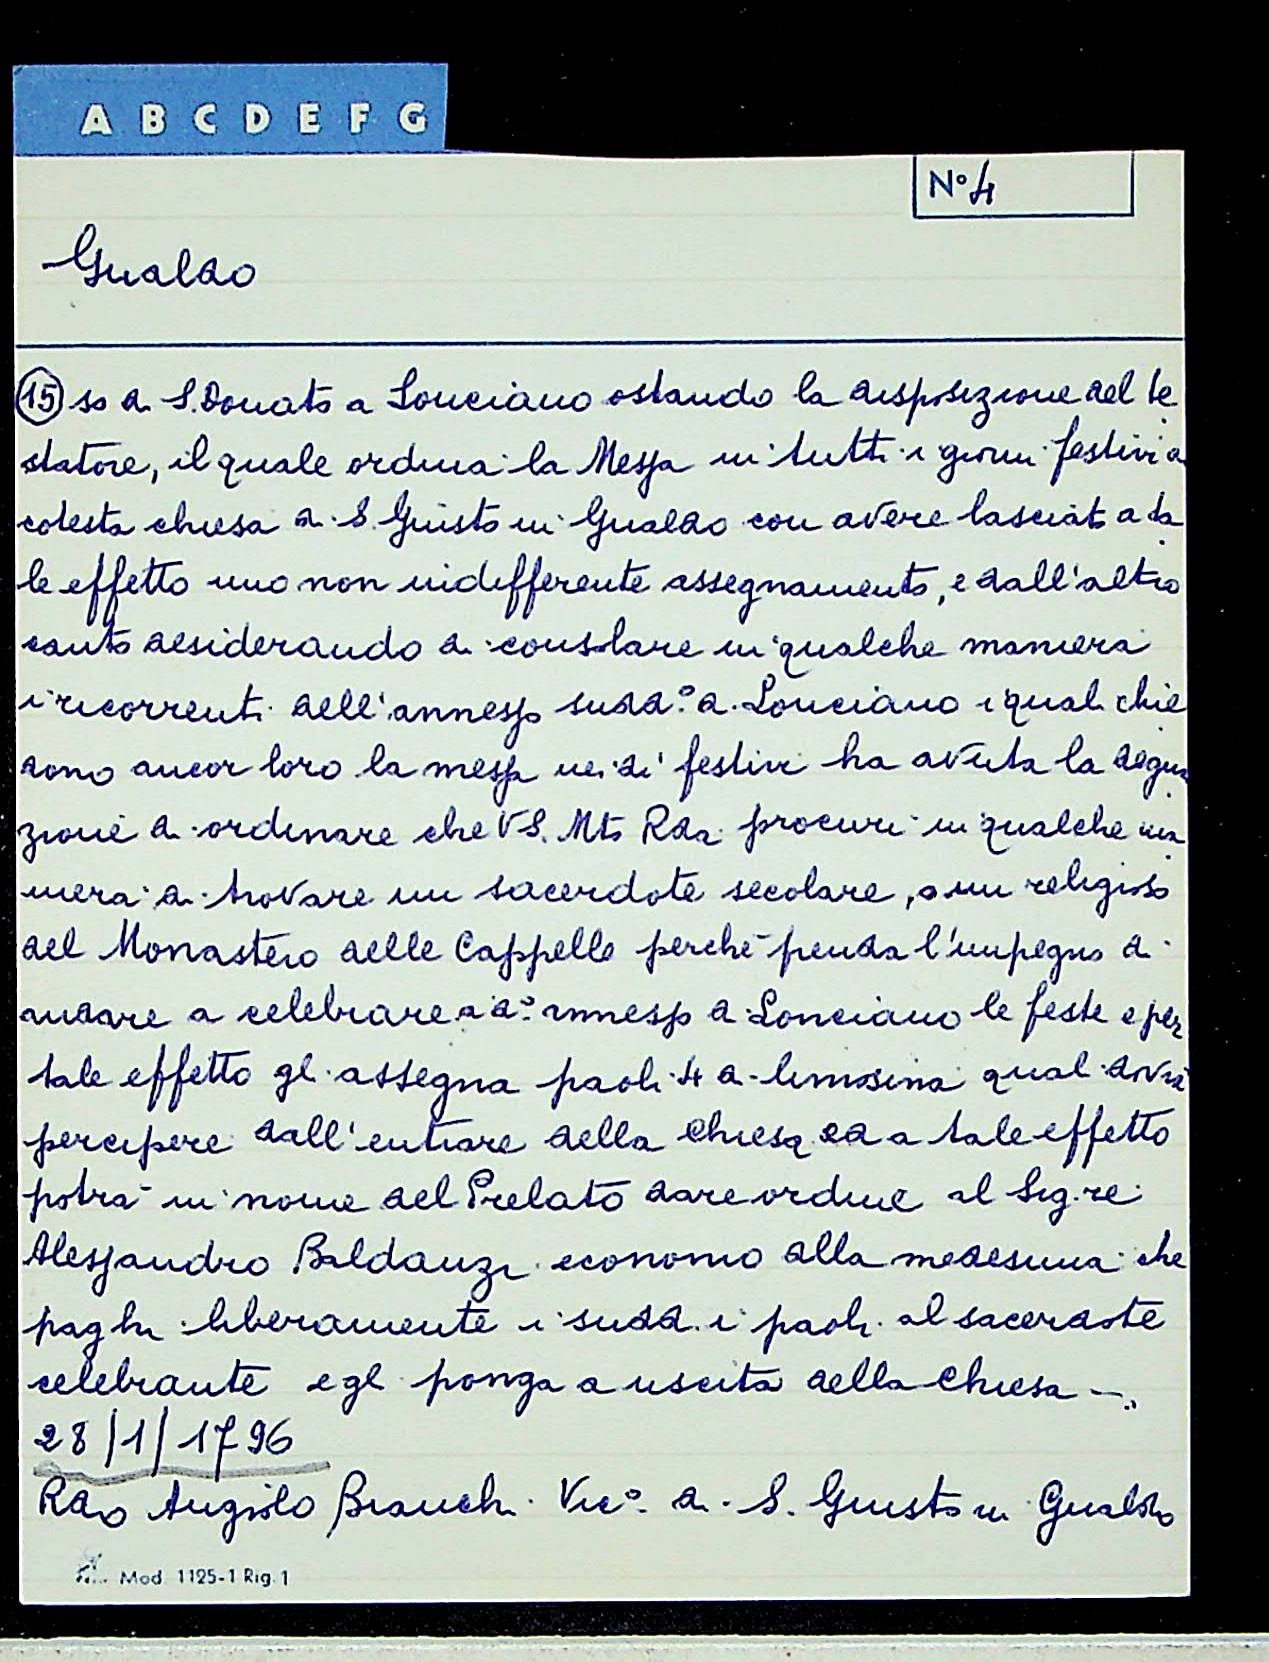 A B C D E F G
N° 4
Gualdo
15 so di S. Donato a Lonciano ostando la disposizione del te
statore, il quale ordina la Messa in tutti i giorni festivi a
cotesta chiesa di S. Giusto in Gualdo con avere lasciato a ta
le effetto uno non indifferente assegnamento, e dall'altro
canto desiderando di consolare in qualche maniera
i ricorrenti dell'annesso sudd.° di Lonciano i quali chie
dono ancor loro la messa nei dì festivi ha avuta la degna
zione di ordinare che VS. Mto Rda procuri in qualche ma
niera di trovare un sacerdote secolare, o un religioso
del Monastero delle Cappelle perché prenda l'impegno di
andare a celebrare a d.° annesso di Lonciano le feste e per
tale effetto gli assegna paoli 4 di limosina quali dovrà
percipere dall'entrare della Chiesa ed a tale effetto
potrà in nome del Prelato dare ordine al Sig.re
Alessandro Baldanzi economo alla medesima che
paghi liberamente i sudd.i paoli al sacerdote
celebrante e gli ponga a uscita della Chiesa –.
28/1/1796
Rdo Angiolo Bianchi Vic° di S. Giusto in Gualdo
Mod. 1125-1 Rig. 1